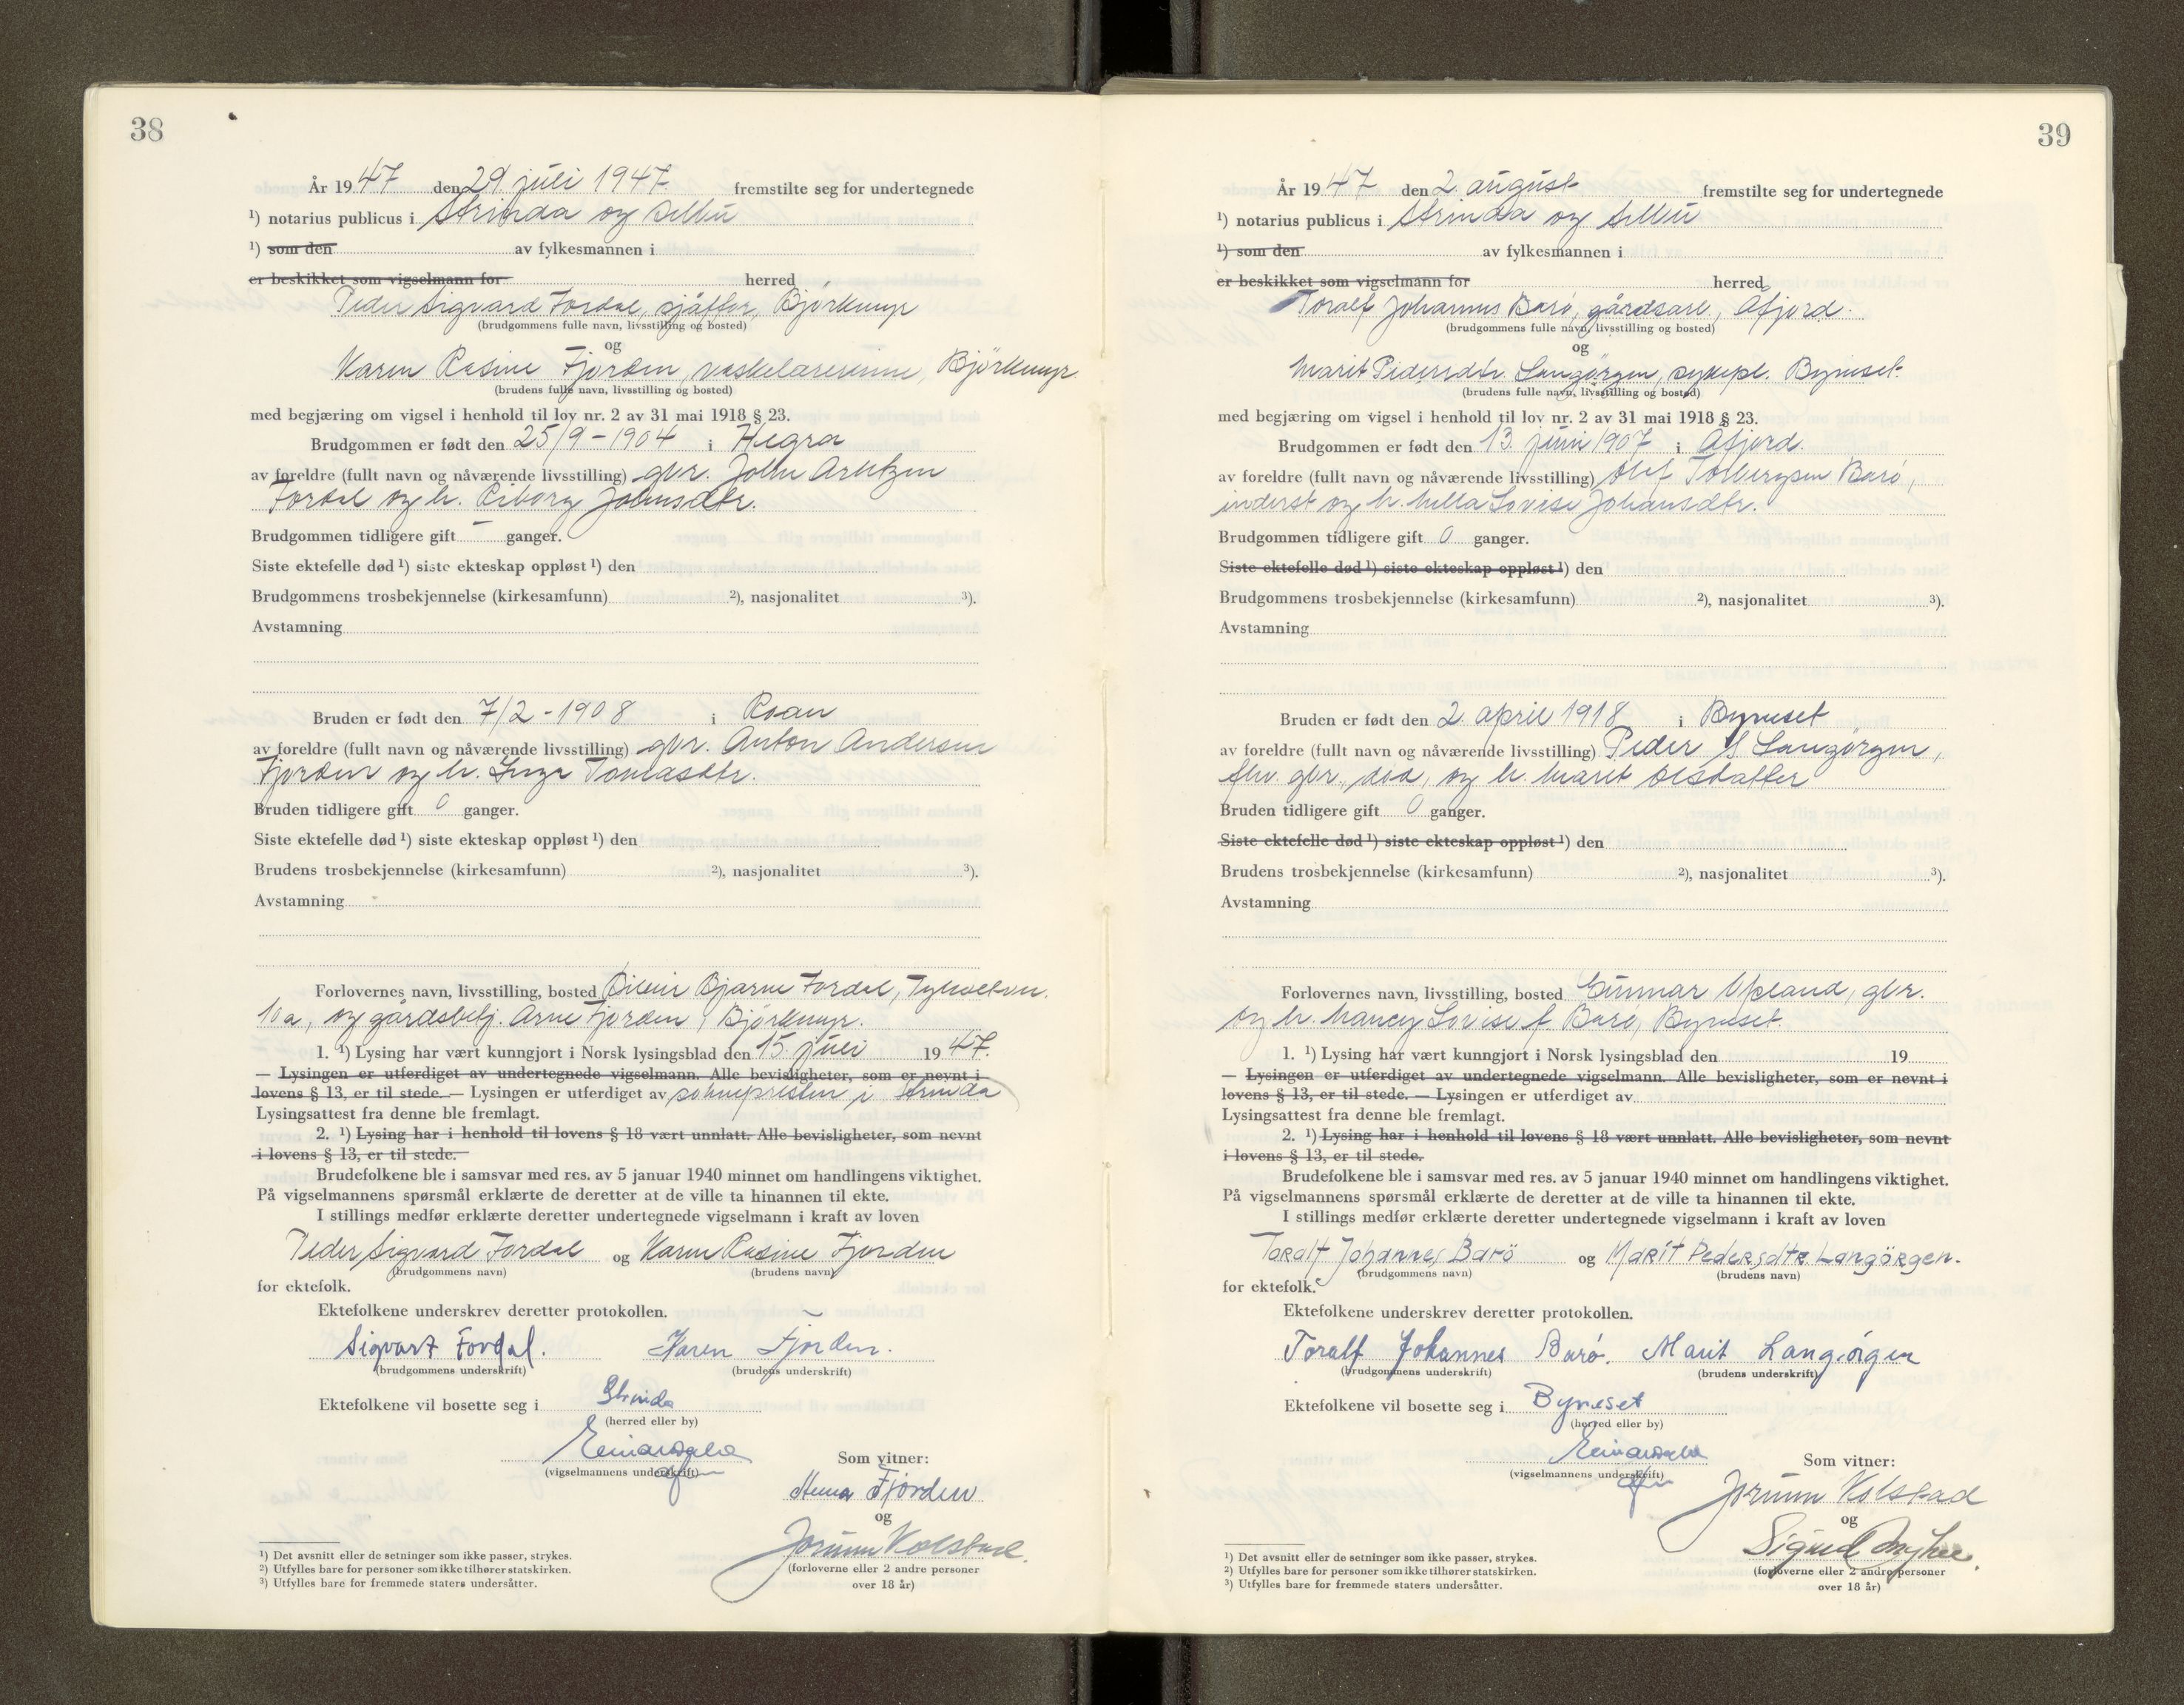 38
År 19 47 den 29 juli 1947. fremstilte seg for undertegnede
¹) notarius publicus i Strinda og Selbu
¹) som den av fylkesmannen i
er beskikket som vigselmann for herred
Peder Sigvard Fordal, sjåffør, Björkmyr
(brudgommens fulle navn, livsstilling og bosted)
og
Karen Rasine Fjorden, Björkmyr
(brudens fulle navn, livsstilling og bosted)
med begjæring om vigsel i henhold til lov nr. 2 av 31 mai 1918 § 23.
Brudgommen er født den 25/9-1904 i Hegra
av foreldre (fullt navn og nåværende livsstilling) gbr. John Arntzen
Fordal og h. Johnsdtr.
Brudgommen tidligere gift - ganger.
Siste ektefelle død ¹) siste ekteskap oppløst ¹) den
Brudgommens trosbekjennelse (kirkesamfunn) ²), nasjonalitet ³).
Avstamning
Bruden er født den 7/2-1908 i Roan
av foreldre (fullt navn og nåværende livsstilling) gbr. Anton Andersen
Fjorden og h. Inga Tomasdtr.
Bruden tidligere gift 0 ganger.
Siste ektefelle død ¹) siste ekteskap oppløst ¹) den
Brudens trosbekjennelse (kirkesamfunn) ²), nasjonalitet ³).
Avstamning
Forlovernes navn, livsstilling, bosted Bjarne Fordal,
10a, og gårdsbest. Arne Fjorden, Björkmyr.
1. ¹) Lysing har vært kunngjort i Norsk lysingsblad den 15. juli 19 47.
— Lysingen er utferdiget av undertegnede vigselmann. Alle bevisligheter, som er nevnt i
lovens § 13, er til stede. — Lysingen er utferdiget av soknepresten i Strinda
Lysingsattest fra denne ble fremlagt.
2. ¹) Lysing har i henhold til lovens § 18 vært unnlatt. Alle bevisligheter, som nevnt
i lovens § 13, er til stede.
Brudefolkene ble i samsvar med res. av 5 januar 1940 minnet om handlingens viktighet.
På vigselmannens spørsmål erklærte de deretter at de ville ta hinannen til ekte.
I stillings medfør erklærte deretter undertegnede vigselmann i kraft av loven
Peder Sigvard Fordal og Karen Rasine Fjorden
(brudgommens navn) (brudens navn)
for ektefolk.
Ektefolkene underskrev deretter protokollen.
Sigvart Fordal. Karen Fjorden.
(brudgommens underskrift) (brudens underskrift)
Ektefolkene vil bosette seg i Strinda
(herred eller by)
(vigselmannens underskrift)
Som vitner:
Fjorden
og
Jorunn Kolstad.
(forloverne eller 2 andre personer
over 18 år)
¹) Det avsnitt eller de setninger som ikke passer, strykes.
²) Utfylles bare for personer som ikke tilhører statskirken.
³) Utfylles bare for fremmede staters undersåtter.
39
År 19 47 den 2. august fremstilte seg for undertegnede
¹) notarius publicus i Strinda og Selbu
¹) som den av fylkesmannen i
er beskikket som vigselmann for herred
Toralf Johannes Barö, gårdsarb., Åfjord.
(brudgommens fulle navn, livsstilling og bosted)
og
Marit Pedersdtr. Langörgen, sykepl. Byneset.
(brudens fulle navn, livsstilling og bosted)
med begjæring om vigsel i henhold til lov nr. 2 av 31 mai 1918 § 23.
Brudgommen er født den 13. juni 1907 i Åfjord.
av foreldre (fullt navn og nåværende livsstilling) Olef Barö,
inderst og h. Lovise Johansdtr.
Brudgommen tidligere gift 0 ganger.
Siste ektefelle død ¹) siste ekteskap oppløst ¹) den
Brudgommens trosbekjennelse (kirkesamfunn) ²), nasjonalitet ³).
Avstamning
Bruden er født den 2. april 1918 i Byneset
av foreldre (fullt navn og nåværende livsstilling) Peder S Langörgen,
fhv. gbr., död, og h. Marit Olsdatter
Bruden tidligere gift 0 ganger.
Siste ektefelle død ¹) siste ekteskap oppløst ¹) den
Brudens trosbekjennelse (kirkesamfunn) ²), nasjonalitet ³).
Avstamning
Forlovernes navn, livsstilling, bosted Gunnar Opland, gbr.
og h. Nancy Lovise f. Barö, Byneset.
1. ¹) Lysing har vært kunngjort i Norsk lysingsblad den 19
— Lysingen er utferdiget av undertegnede vigselmann. Alle bevisligheter, som er nevnt i
lovens § 13, er til stede. — Lysingen er utferdiget av
Lysingsattest fra denne ble fremlagt.
2. ¹) Lysing har i henhold til lovens § 18 vært unnlatt. Alle bevisligheter, som nevnt
i lovens § 13, er til stede.
Brudefolkene ble i samsvar med res. av 5 januar 1940 minnet om handlingens viktighet.
På vigselmannens spørsmål erklærte de deretter at de ville ta hinannen til ekte.
I stillings medfør erklærte deretter undertegnede vigselmann i kraft av loven
Toralf Johannes Barö og Marit Pedersdtr. Langörgen.
(brudgommens navn) (brudens navn)
for ektefolk.
Ektefolkene underskrev deretter protokollen.
Toralf Johannes Barö. Marit Langörgen
(brudgommens underskrift) (brudens underskrift)
Ektefolkene vil bosette seg i Byneset
(herred eller by)
(vigselmannens underskrift)
Som vitner:
Jorunn Kolstad
og
Sigrid
(forloverne eller 2 andre personer
over 18 år)
¹) Det avsnitt eller de setninger som ikke passer, strykes.
²) Utfylles bare for personer som ikke tilhører statskirken.
³) Utfylles bare for fremmede staters undersåtter.